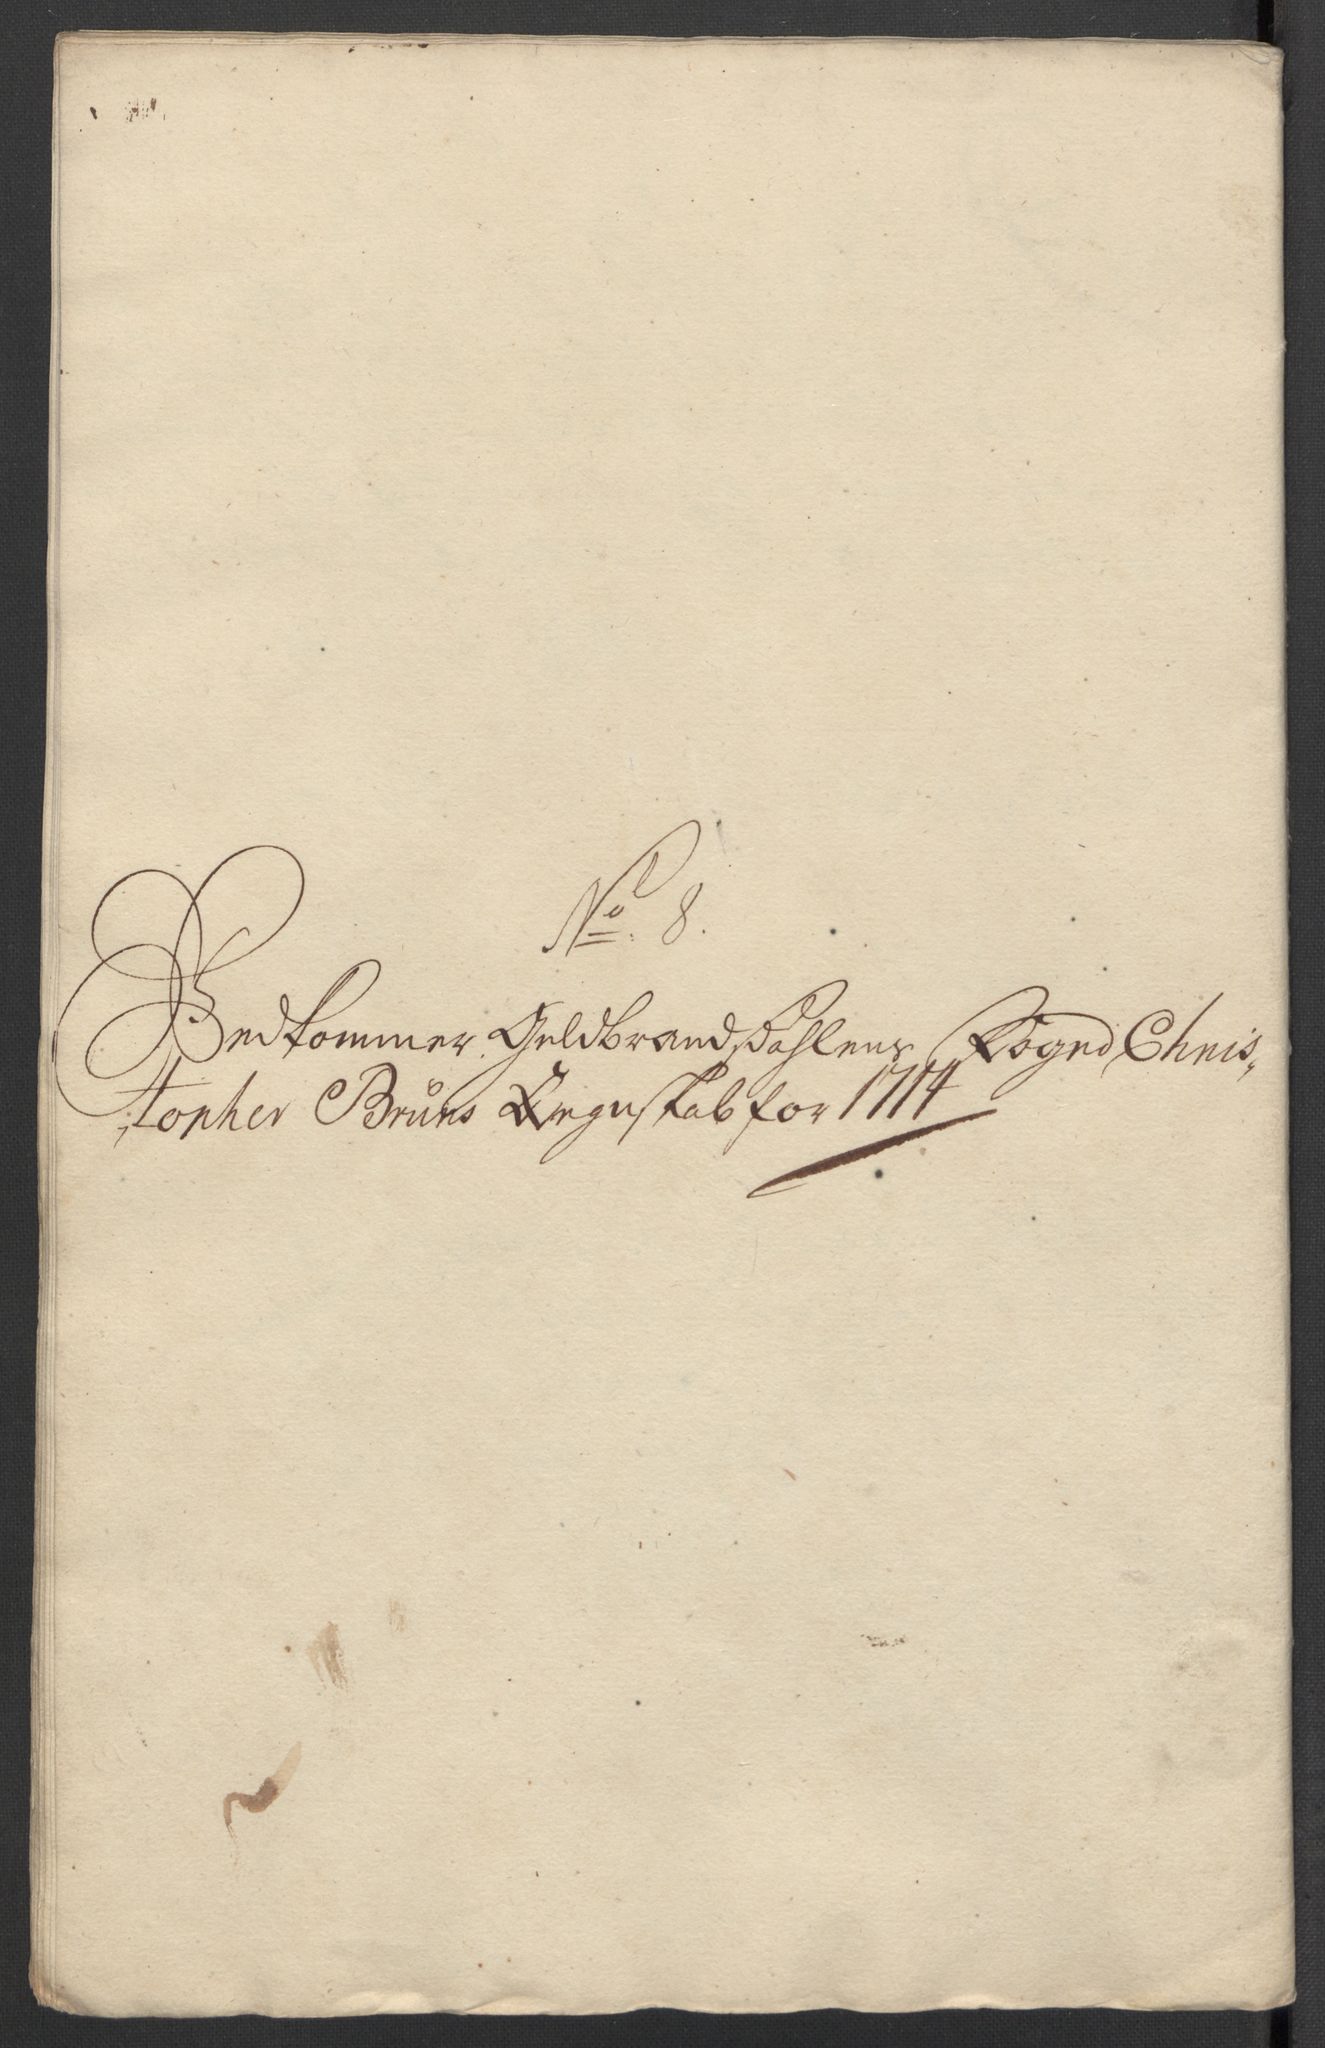 No. 8.
Vedkommer Guldbrandsdahlens Foged Chris-
topher Bruns Regnskab for 1714